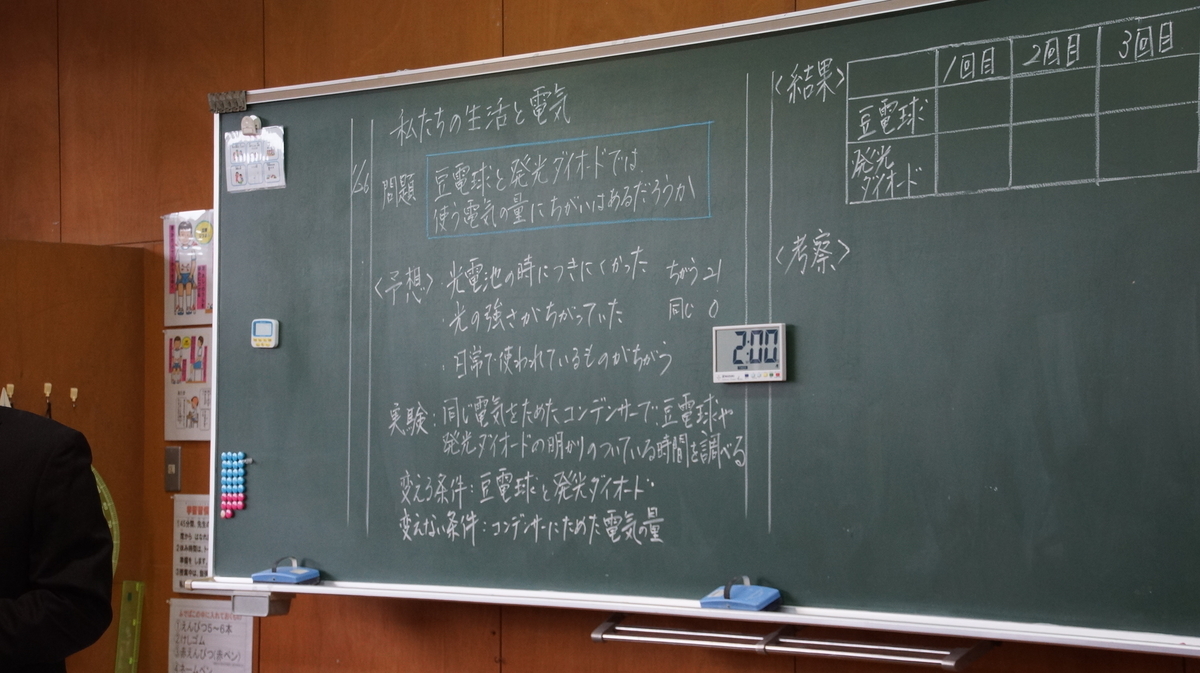 私たちの生活と電気
1/26
問題
豆電球と発光ダイオードでは
使う電気の量にちがいはあるだろうか
〈予想〉光電池の時につきにくかった
・光の強さがちがっていた
・日常で使われているものがちがう
ちがう21
同じ 0
実験:同じ電気をためたコンデンサーで豆電球や
発光ダイオードの明かりのついている時間を調べる
変える条件:豆電球と発光ダイオード
変えない条件:コンデンサーにためた電気の量
〈結果〉
1回目 2回目 3回目
豆電球
発光
ダイオード
〈考察〉
2:00
1えんぴつ5〜6本
2けしゴム
3赤えんぴつ(赤ペン)
4ネームペン